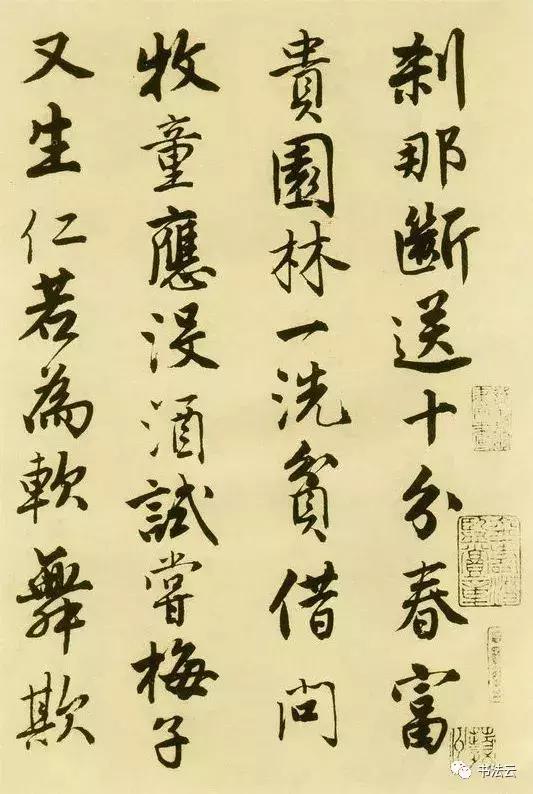 刹那斷送十分春富
貴園林一洗貧借問
牧童應沒酒試嘗梅子
又生仁若為軟舞欺
书法云